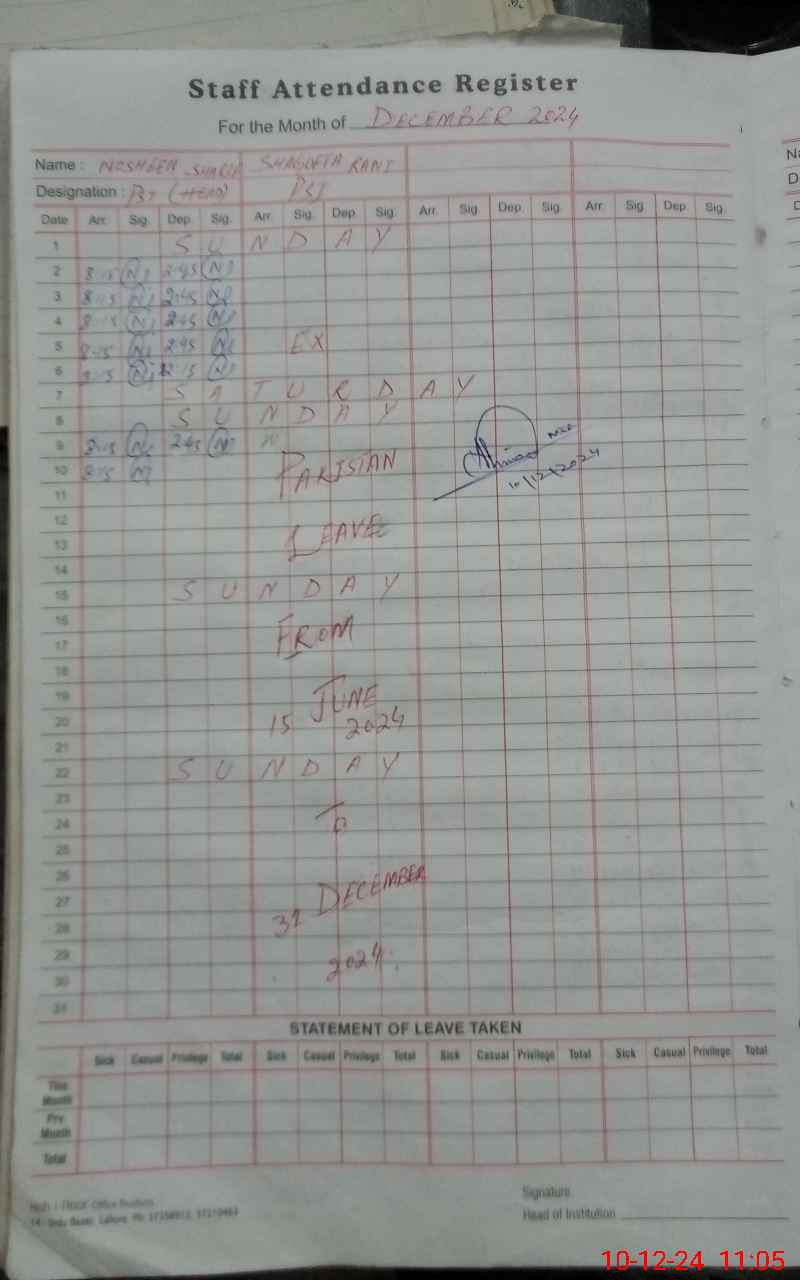 Staff Attendance Register
For the Month of DECEMBER 2024
Name : NOSHEEN SHAGUFTA RANI
Designation : (HEAD) PST
Date Arr. Sig. Dep. Sig. Arr. Sig. Dep. Sig. Arr. Sig. Dep. Sig. Arr. Sig. Dep. Sig.
1 S U N D A Y
2 8:15 N 2:45 N
3 8:15 N 2:45 N
4 8:15 N 2:45 N
5 8:15 N 2:45 N EX
6 8:15 N 12:15 N
7 S A T U R D A Y
8 S U N D A Y
9 8:15 N 2:45 N
10 8:15 N PAKISTAN
10/12/2024
11
12
13 LEAVE
14
15 S U N D A Y
16
17 FROM
18
19 JUNE
20 15 2024
21
22 S U N D A Y
23
24 TO
25
26
27 DECEMBER
28 31
29 2024.
30
31
STATEMENT OF LEAVE TAKEN
Sick Casual Privilege Total Sick Casual Privilege Total Sick Casual Privilege Total Sick Casual Privilege Total
This Month
Pre Month
Total
Signature
Head of Institution
10-12-24 11:05